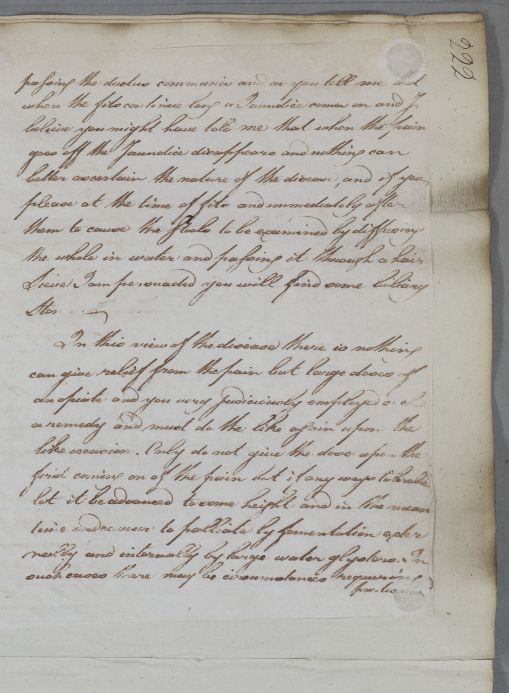 222
passing the ductus communis and as you tell me that
when the fits continue long a Jaundice comes on and I
believe you might have told me that when the pain
goes off the Jaundice disappears and nothing can
better ascertain the nature of the disease, and if you
please at the time of fits and immediately after
them to cause the Stools to be examined by diffusing
the whole in water and passing it through a hair
Sieve I am persuaded you will find some biliary
In this view of the disease there is nothing
can give relief from the pain but large doses of
an opiate and you very Judiciously employed such
a remedy and must do the like again upon the
like occasion. Only do not give the dose upon the
first coming on of the pain but if any ways tolerable
let it be advanced to some height and in the mean
time endeavour to palliate by fomentation exter
nally and internally by large water glysters. In
such cases there may be circumstances requiring